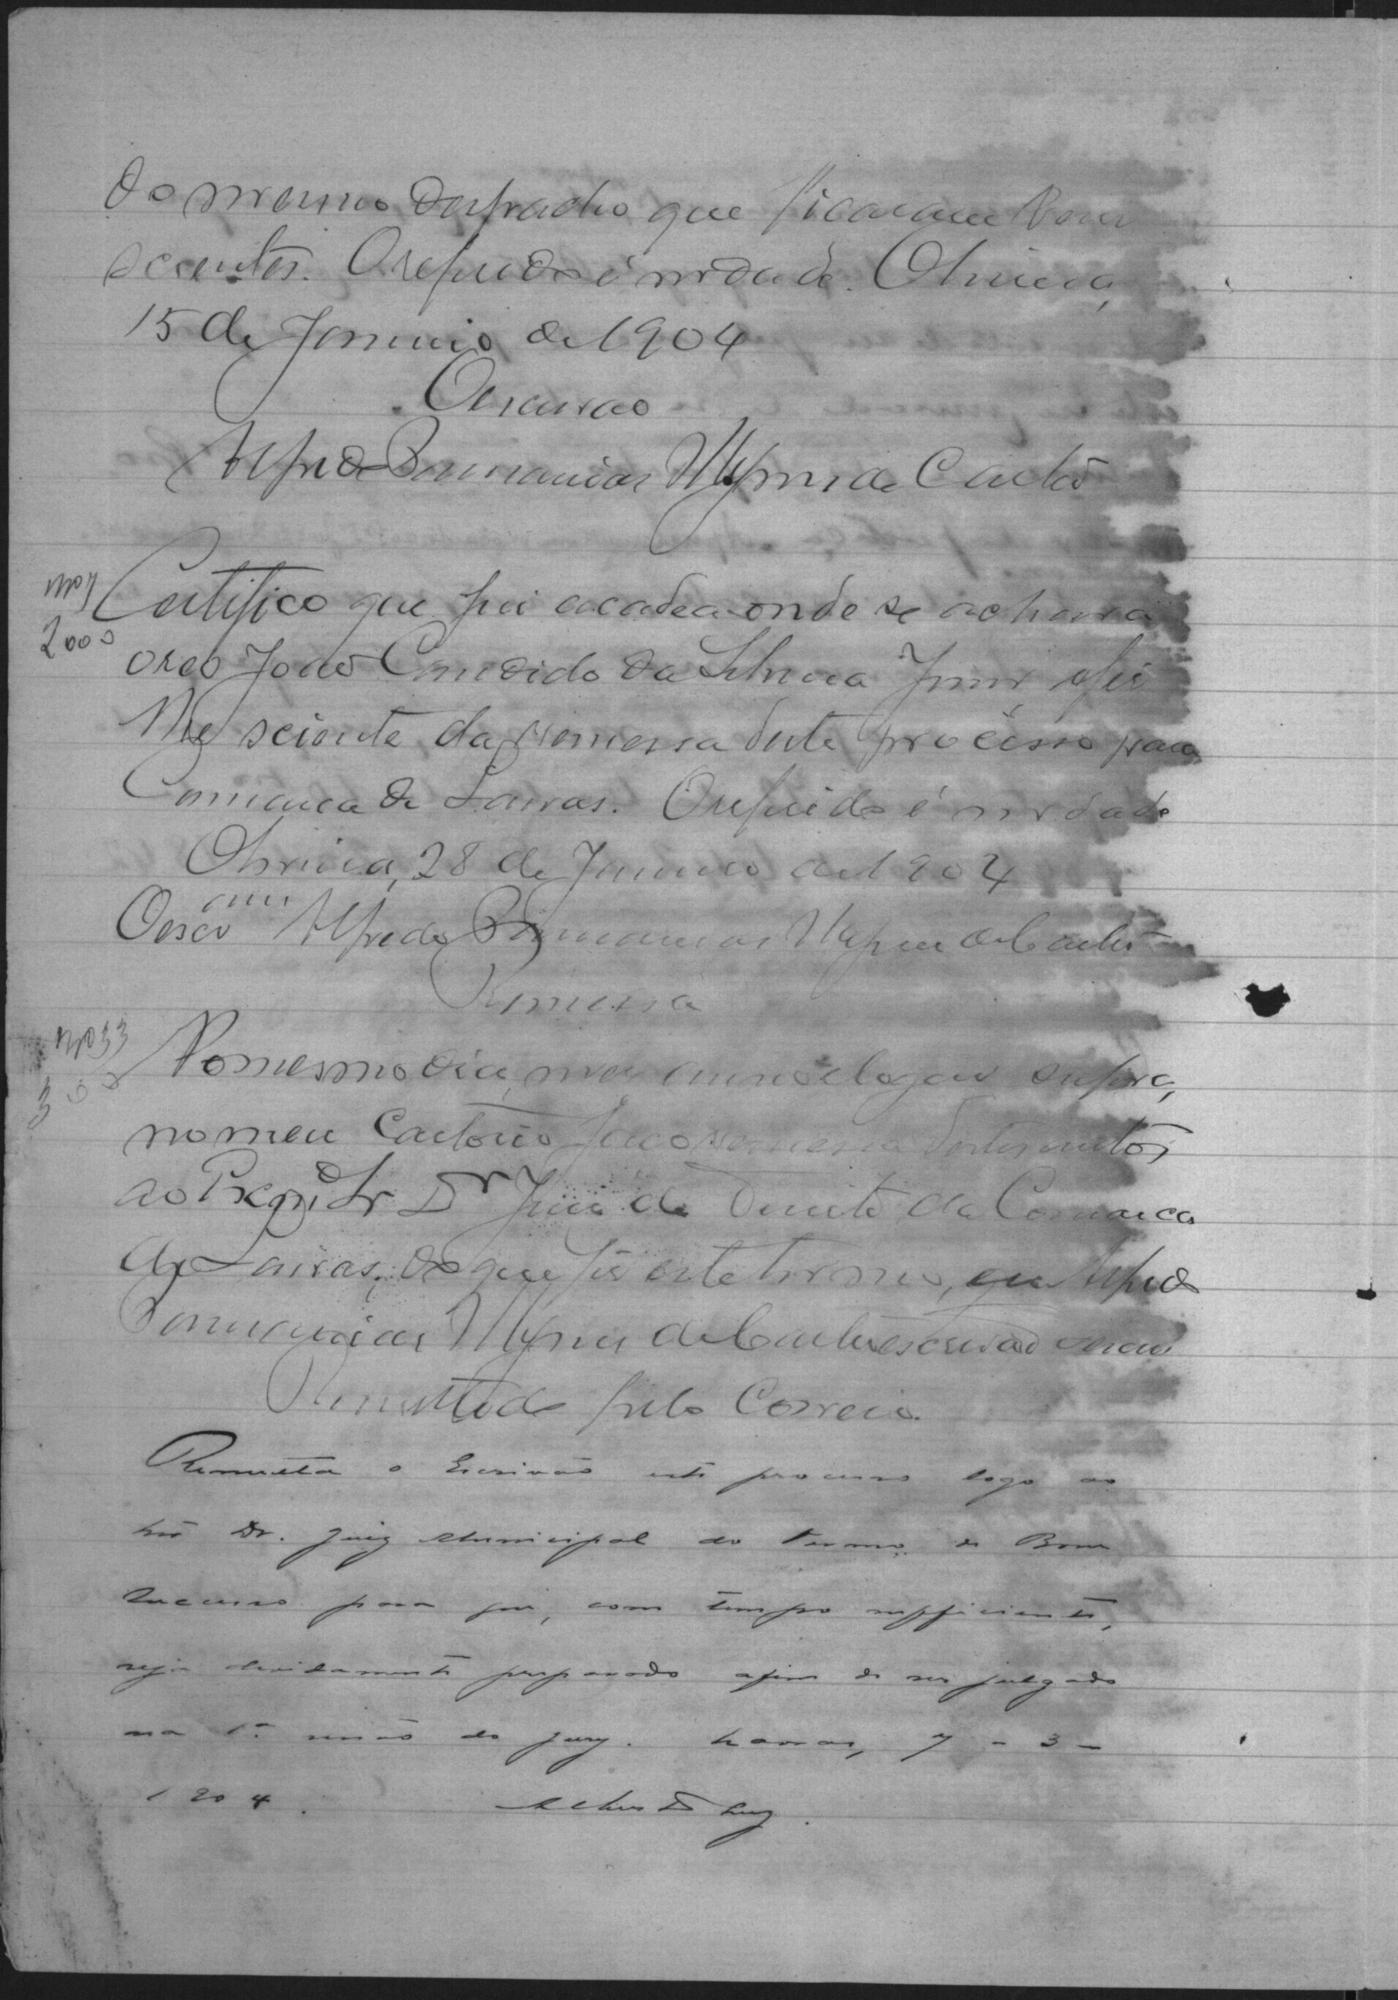 do mesmo despacho que ficaram bem
scientes. O referido é verdade. Oliveira,
15 de Janeiro de 1904
O escrivao
Alfredo de Castro
Certifico que fui a cadea onde se achava
o reo João Candido da Silveira Junior e fiz
lhe sciente da remessa deste processo para
Comarca de Lavras. O referido é verdade
Oliveira, 28 de Janeiro de 1904
O escr.am Alfredo de Castro
Remessa
No mesmo dia, mez anno e logar supra,
no meu Cartorio faço remessa destes autos
ao Sr Dr Juiz de Direito da Comarca
de Lavras, do que fiz este termo, eu Alfredo
de Castro escrivao
Remettido pelo Correio.
Remetta o Escrivão este processo logo ao
Dr. Juiz Municipal do Termo de Bom
Successo para que, com tempo sufficiente,
seja devidamente preparado afim de ser julgado
na 1.a sessão do jury. Lavras, 7-3-
1904.